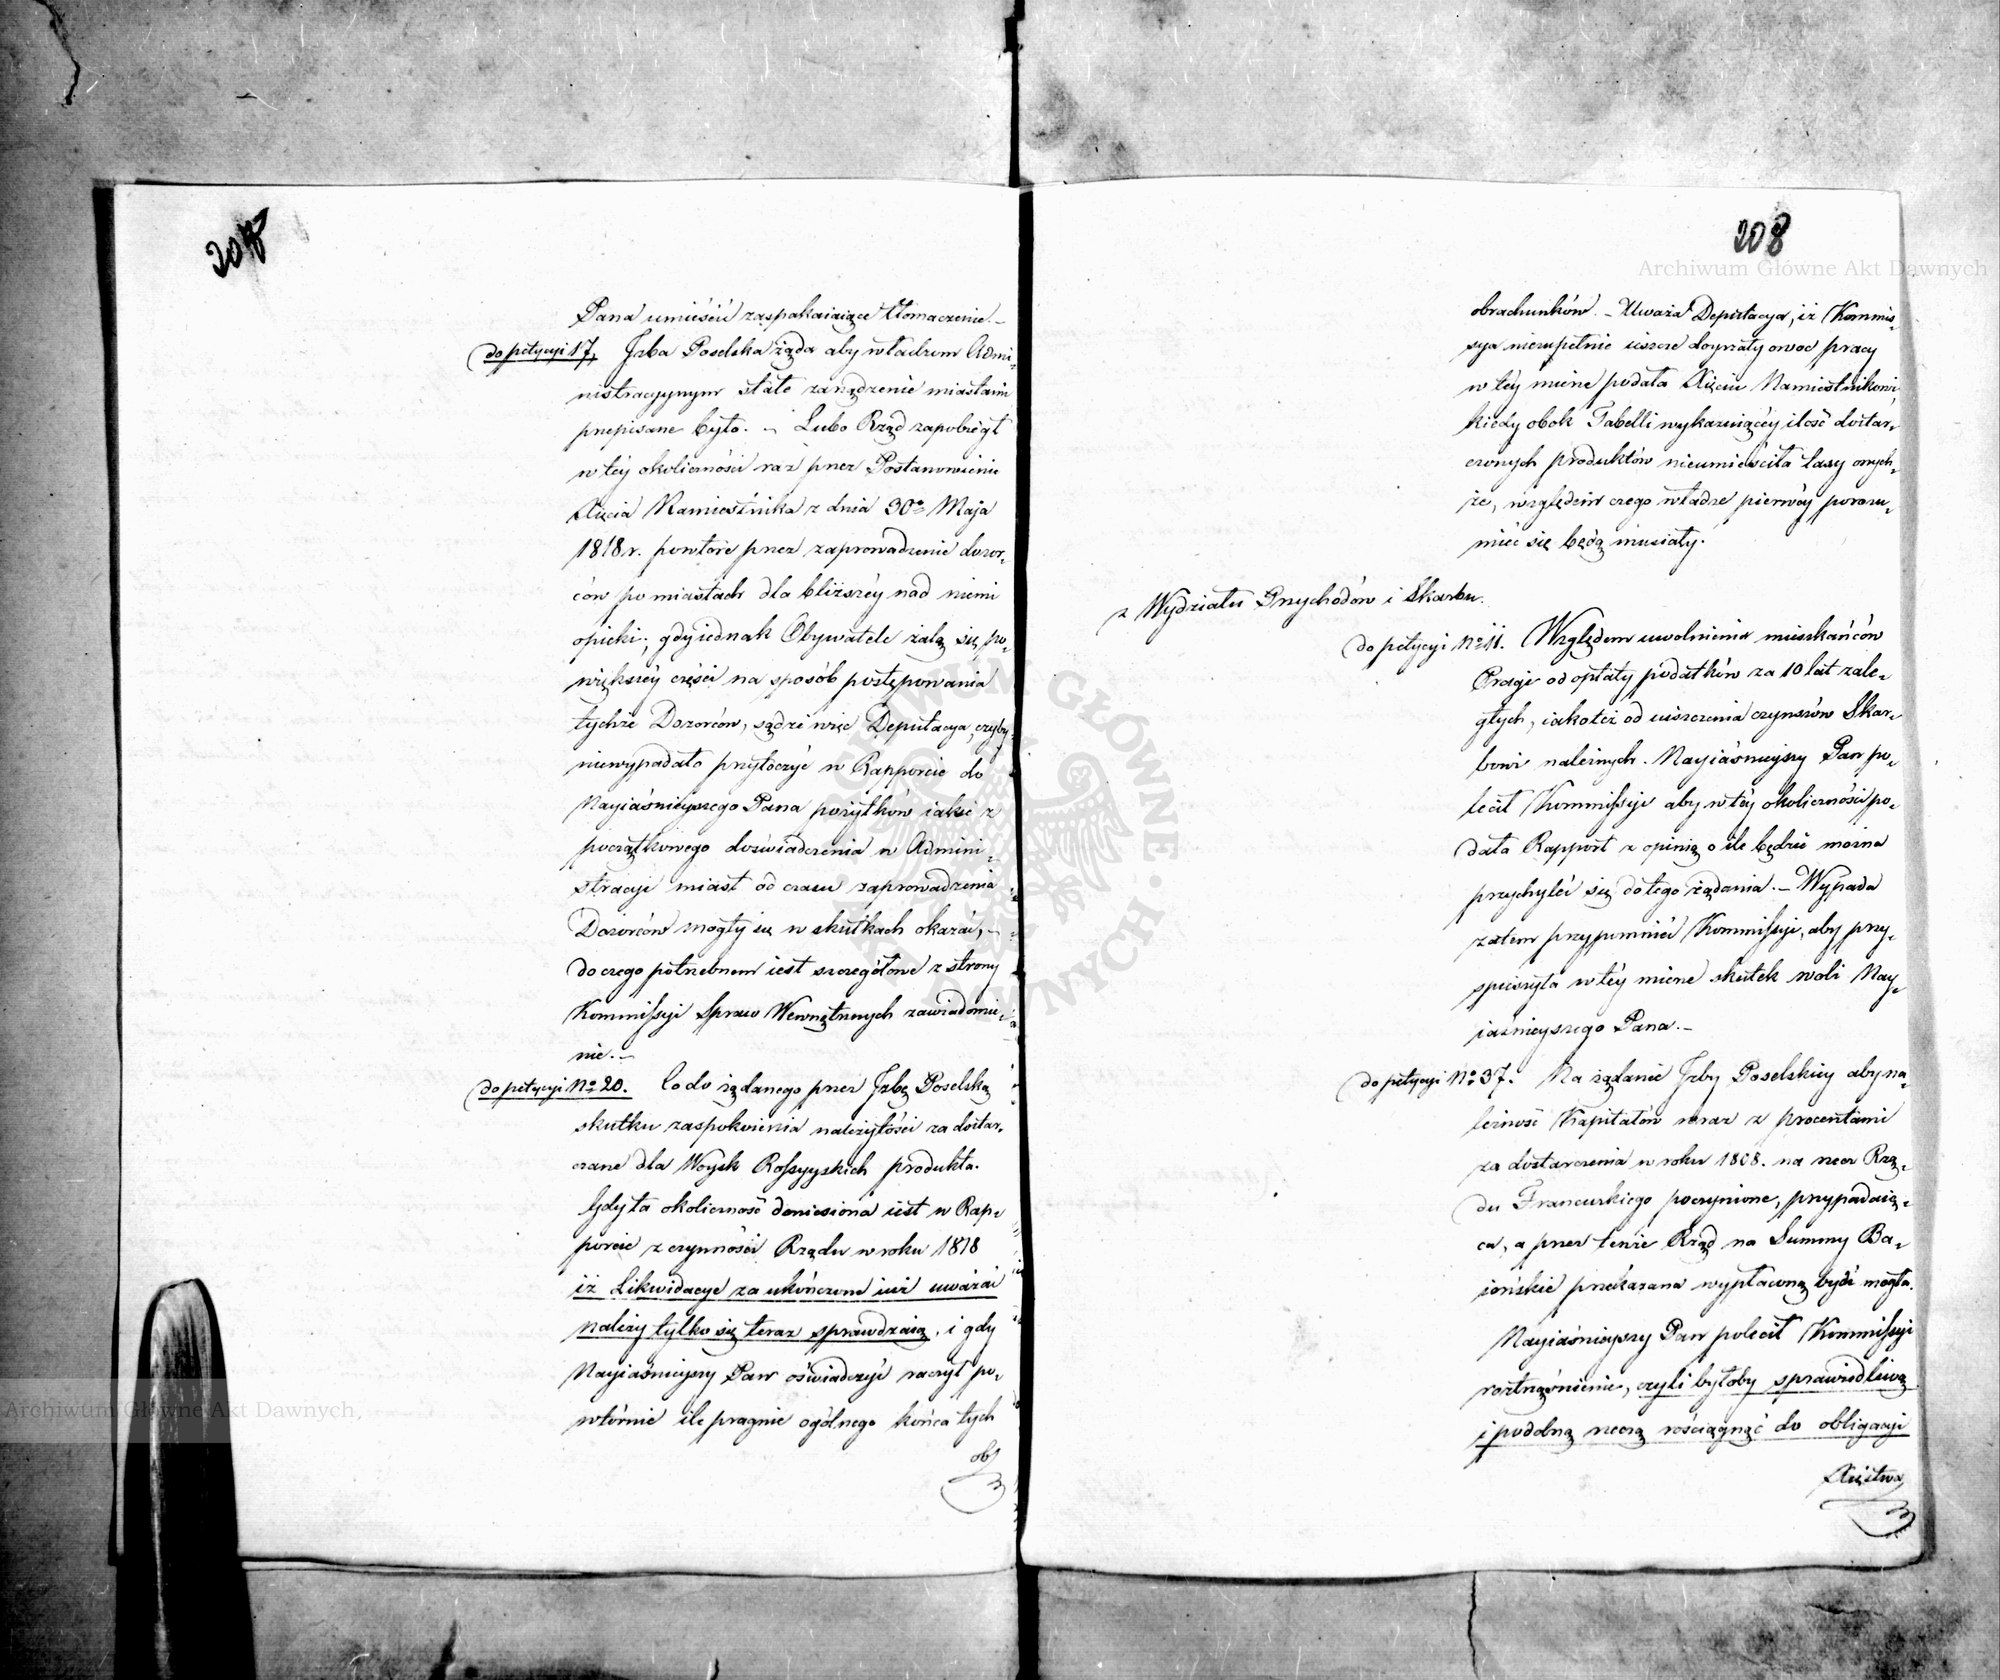 207
Pana umieścić zaspakaiaiące tłomaczenie. –
do petycyi 17, Izba Poselska żąda aby władzom Admi-
nistracyjnym stałe zarządzenie miastami
przepisane było. – Lubo Rząd zapobiegł
w téy okoliczności raz przez Postanowienie
Xięcia Namiestnika z dnia 30º Maja
1818 r. powtóre przez zaprowadzenie dozor-
ców po miastach dla bliższéy nad niemi
opieki; gdy iednak Obywatele żalą się po-
większéy części na sposób postępowania
tychże Dozorców, sądzi więc Deputacya, czyby
niewypadało przytoczyć w Rapporcie do
Nayiaśnieyszego Pana pożytków iakie z
początkowego doświadczenia w Admini-
stracyi miast od czasu zaprowadzenia
Dozorców mogły się w skutkach okazać, –
do czego potrzebnem iest szczegółowe z strony
Kommissyi Spraw Wewnętrznych zawiadomie-
nie. –
do petycyi Nº 20. Co do żądanego przez Izbę Poselską
skutku zaspokoienia należytości za dostar-
czane dla Woysk Rossyyskich produkta.
Gdy ta okoliczność doniesiona iest w Rap-
porcie z czynności Rządu w roku 1818
iż Likwidacye za ukończone iuż uważać
należy tylko się teraz sprawdzaią, i gdy
Nayiaśnieyszy Pan oświadczyć raczył po-
wtórnie ile pragnie ogólnego końca tych
ob
208
Archiwum Główne Akt Dawnych
obrachunków. – Uważa Deputacya, iż Kommis-
sya niezupełnie ieszcze doyrzały owoc pracy
w téy mierze podała Xięciu Namiestnikowi,
kiedy obok Tabelli wykazuiącéy ilość dostar-
czonych produktów nieumieściła taxy onych-
że, względem czego władze pierwéy porozu-
mieć się będą musiały.
z Wydziału Przychodów i Skarbu.
do petycyi Nº 11. Względem uwolnienia mieszkańców
Pragi od opłaty podatków za 10 lat zale-
głych, iakoteż od uiszczenia czynszów Skar-
bowi należnych. Nayiaśnieyszy Pan po-
lecił Kommissyi aby w téy okoliczności po-
dała Rapport z opinią o ile będzie można
przychylić się do tego żądania. – Wypada
zatem przypomnieć Kommissyi, aby przy-
spieszyła w téy mierze skutek woli Nay-
iaśnieyszego Pana. –
do petycyi Nº 37. Na żądanie Izby Poselskiey aby na-
leżność Kapitałów wraz z procentami
za dostarczenia w roku 1808. na rzecz Rzą-
du Francuskiego poczynione, przypadaią-
ca, a przez tenże Rząd na Summy Ba-
iońskie przekazana wypłaconą bydź mogła.
Nayiaśnieyszy Pan polecił Kommissyi
roztrząśnienie, czyli byłoby sprawiedliwą
i podobną rzeczą rościągnąć do obligacyi
Xięstwa
ARCHIWUM GŁÓWNE AKT DAWNYCH
Archiwum Główne Akt Dawnych,